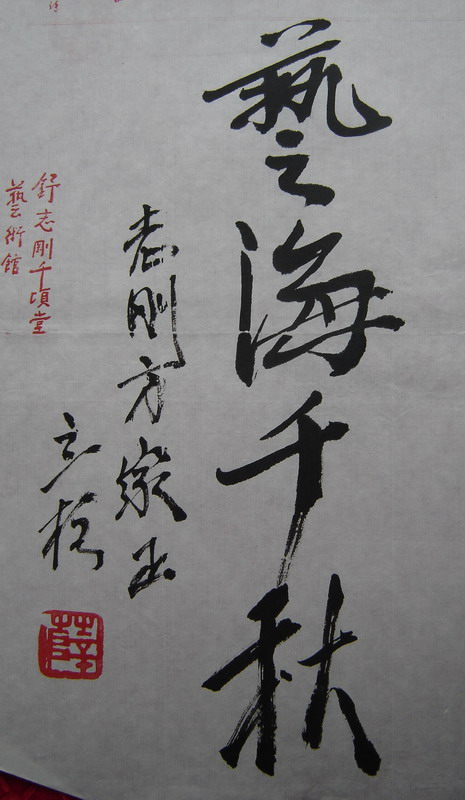 藝海千秋
志剛方家正
舒志剛千頃堂
藝術館